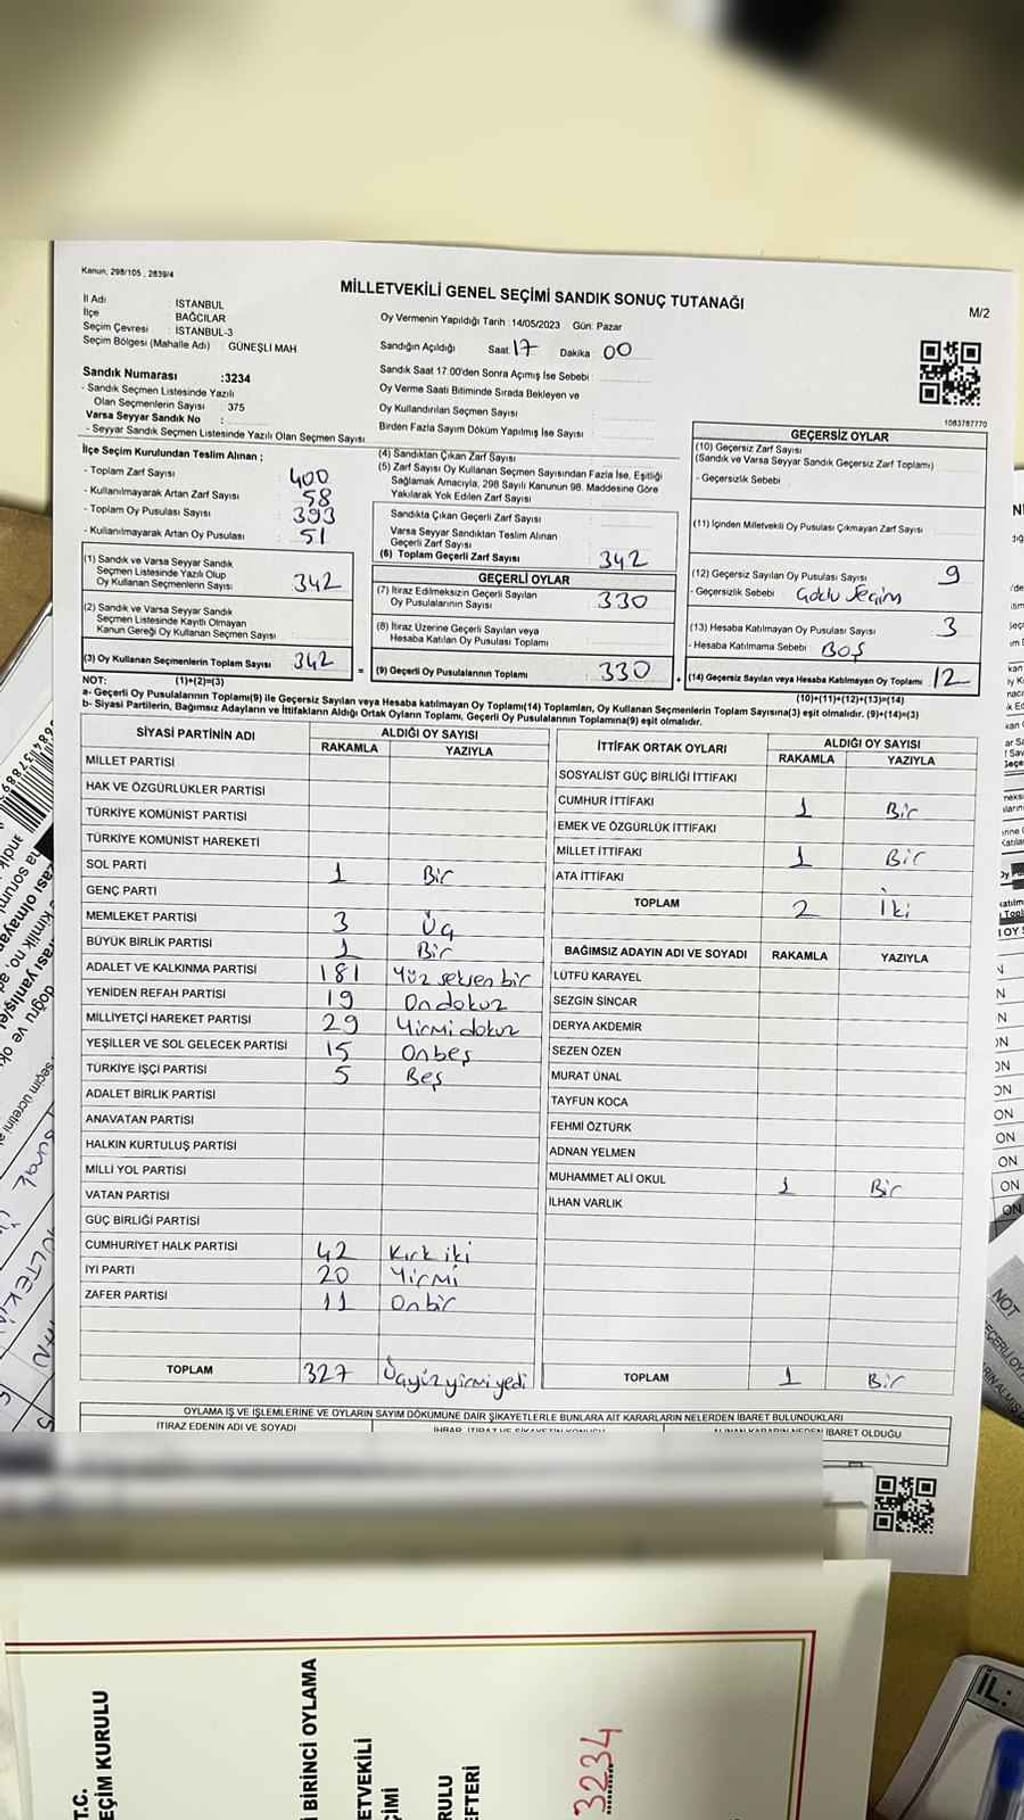 Kanun, 298/105 , 2839/4
MİLLETVEKİLİ GENEL SEÇİMİ SANDIK SONUÇ TUTANAĞI
M/2
İl Adı İSTANBUL
İlçe BAĞCILAR
Seçim Çevresi : İSTANBUL-3
Seçim Bölgesi (Mahalle Adı) GÜNEŞLİ MAH
Sandık Numarası :3234
- Sandık Seçmen Listesinde Yazılı
Olan Seçmenlerin Sayısı : 375
Varsa Seyyar Sandık No :
- Seyyar Sandık Seçmen Listesinde Yazılı Olan Seçmen Sayısı
Oy Vermenin Yapıldığı Tarih :14/05/2023 Gün: Pazar
Sandığın Açıldığı Saat 17 Dakika 00
Sandık Saat 17:00'den Sonra Açımış İse Sebebi
Oy Verme Saati Bitiminde Sırada Bekleyen ve
Oy Kullandırılan Seçmen Sayısı
Birden Fazla Sayım Döküm Yapılmış İse Sayısı
1083787770
İlçe Seçim Kurulundan Teslim Alınan ;
- Toplam Zarf Sayısı 400
- Kullanılmayarak Artan Zarf Sayısı 58
- Toplam Oy Pusulası Sayısı 393
- Kullanılmayarak Artan Oy Pusulası 51
(1) Sandık ve Varsa Seyyar Sandık
Seçmen Listesinde Yazılı Olup
Oy Kullanan Seçmenlerin Sayısı 342
(2) Sandık ve Varsa Seyyar Sandık
Seçmen Listesinde Kayıtlı Olmayan
Kanun Gereği Oy Kullanan Seçmen Sayısı
(3) Oy Kullanan Seçmenlerin Toplam Sayısı 342
(4) Sandıktan Çıkan Zarf Sayısı
(5) Zarf Sayısı Oy Kullanan Seçmen Sayısından Fazla İse, Eşitliği
Sağlamak Amacıyla, 298 Sayılı Kanunun 98. Maddesine Göre
Yakılarak Yok Edilen Zarf Sayısı
Sandıkta Çıkan Geçerli Zarf Sayısı
Varsa Seyyar Sandıktan Teslim Alınan
Geçerli Zarf Sayısı
(6) Toplam Geçerli Zarf Sayısı 342
GEÇERLİ OYLAR
(7) İtiraz Edilmeksizin Geçerli Sayılan
Oy Pusulalarının Sayısı 330
(8) İtiraz Üzerine Geçerli Sayılan veya
Hesaba Katılan Oy Pusulası Toplamı
= (9) Geçerli Oy Pusulalarının Toplamı 330
GEÇERSİZ OYLAR
(10) Geçersiz Zarf Sayısı
(Sandık ve Varsa Seyyar Sandık Geçersiz Zarf Toplamı)
- Geçersizlik Sebebi
(11) İçinden Milletvekili Oy Pusulası Çıkmayan Zarf Sayısı
(12) Geçersiz Sayılan Oy Pusulası Sayısı 9
- Geçersizlik Sebebi Çoklu Seçim
(13) Hesaba Katılmayan Oy Pusulası Sayısı 3
- Hesaba Katılmama Sebebi BOŞ
(14) Geçersiz Sayılan veya Hesaba Katılmayan Oy Toplamı 12
NOT: (1)+(2)=(3) (10)+(11)+(12)+(13)=(14)
a- Geçerli Oy Pusulalarının Toplamı(9) ile Geçersiz Sayılan veya Hesaba katılmayan Oy Toplamı(14) Toplamları, Oy Kullanan Seçmenlerin Toplam Sayısına(3) eşit olmalıdır. (9)+(14)=(3)
b- Siyasi Partilerin, Bağımsız Adayların ve İttifakların Aldığı Ortak Oyların Toplamı, Geçerli Oy Pusulalarının Toplamına(9) eşit olmalıdır.
SİYASİ PARTİNİN ADI ALDIĞI OY SAYISI
RAKAMLA YAZIYLA
MİLLET PARTİSİ
HAK VE ÖZGÜRLÜKLER PARTİSİ
TÜRKİYE KOMÜNİST PARTİSİ
TÜRKİYE KOMÜNİST HAREKETİ
SOL PARTİ 1 Bir
GENÇ PARTİ
MEMLEKET PARTİSİ 3 Üç
BÜYÜK BİRLİK PARTİSİ 1 Bir
ADALET VE KALKINMA PARTİSİ 181 Yüz seksen bir
YENİDEN REFAH PARTİSİ 19 On dokuz
MİLLİYETÇİ HAREKET PARTİSİ 29 Yirmi dokuz
YEŞİLLER VE SOL GELECEK PARTİSİ 15 Onbeş
TÜRKİYE İŞÇİ PARTİSİ 5 Beş
ADALET BİRLİK PARTİSİ
ANAVATAN PARTİSİ
HALKIN KURTULUŞ PARTİSİ
MİLLİ YOL PARTİSİ
VATAN PARTİSİ
GÜÇ BİRLİĞİ PARTİSİ
CUMHURİYET HALK PARTİSİ 42 Kırk iki
İYİ PARTİ 20 Yirmi
ZAFER PARTİSİ 11 Onbir
TOPLAM 327 Üçyüzyirmiyedi
İTTİFAK ORTAK OYLARI ALDIĞI OY SAYISI
RAKAMLA YAZIYLA
SOSYALİST GÜÇ BİRLİĞİ İTTİFAKI
CUMHUR İTTİFAKI 1 Bir
EMEK VE ÖZGÜRLÜK İTTİFAKI
MİLLET İTTİFAKI 1 Bir
ATA İTTİFAKI
TOPLAM 2 İki
BAĞIMSIZ ADAYIN ADI VE SOYADI RAKAMLA YAZIYLA
LÜTFÜ KARAYEL
SEZGİN SİNCAR
DERYA AKDEMİR
SEZEN ÖZEN
MURAT ÜNAL
TAYFUN KOCA
FEHMİ ÖZTÜRK
ADNAN YELMEN
MUHAMMET ALİ OKUL 1 Bir
İLHAN VARLIK
TOPLAM 1 Bir
OYLAMA İŞ VE İŞLEMLERİNE VE OYLARIN SAYIM DÖKÜMÜNE DAİR ŞİKAYETLERLE BUNLARA AİT KARARLARIN NELERDEN İBARET BULUNDUKLARI
İTİRAZ EDENİN ADI VE SOYADI
İBARET OLDUĞU
T.C.
SEÇİM KURULU
BİRİNCİ OYLAMA
3234
İL:
NOT